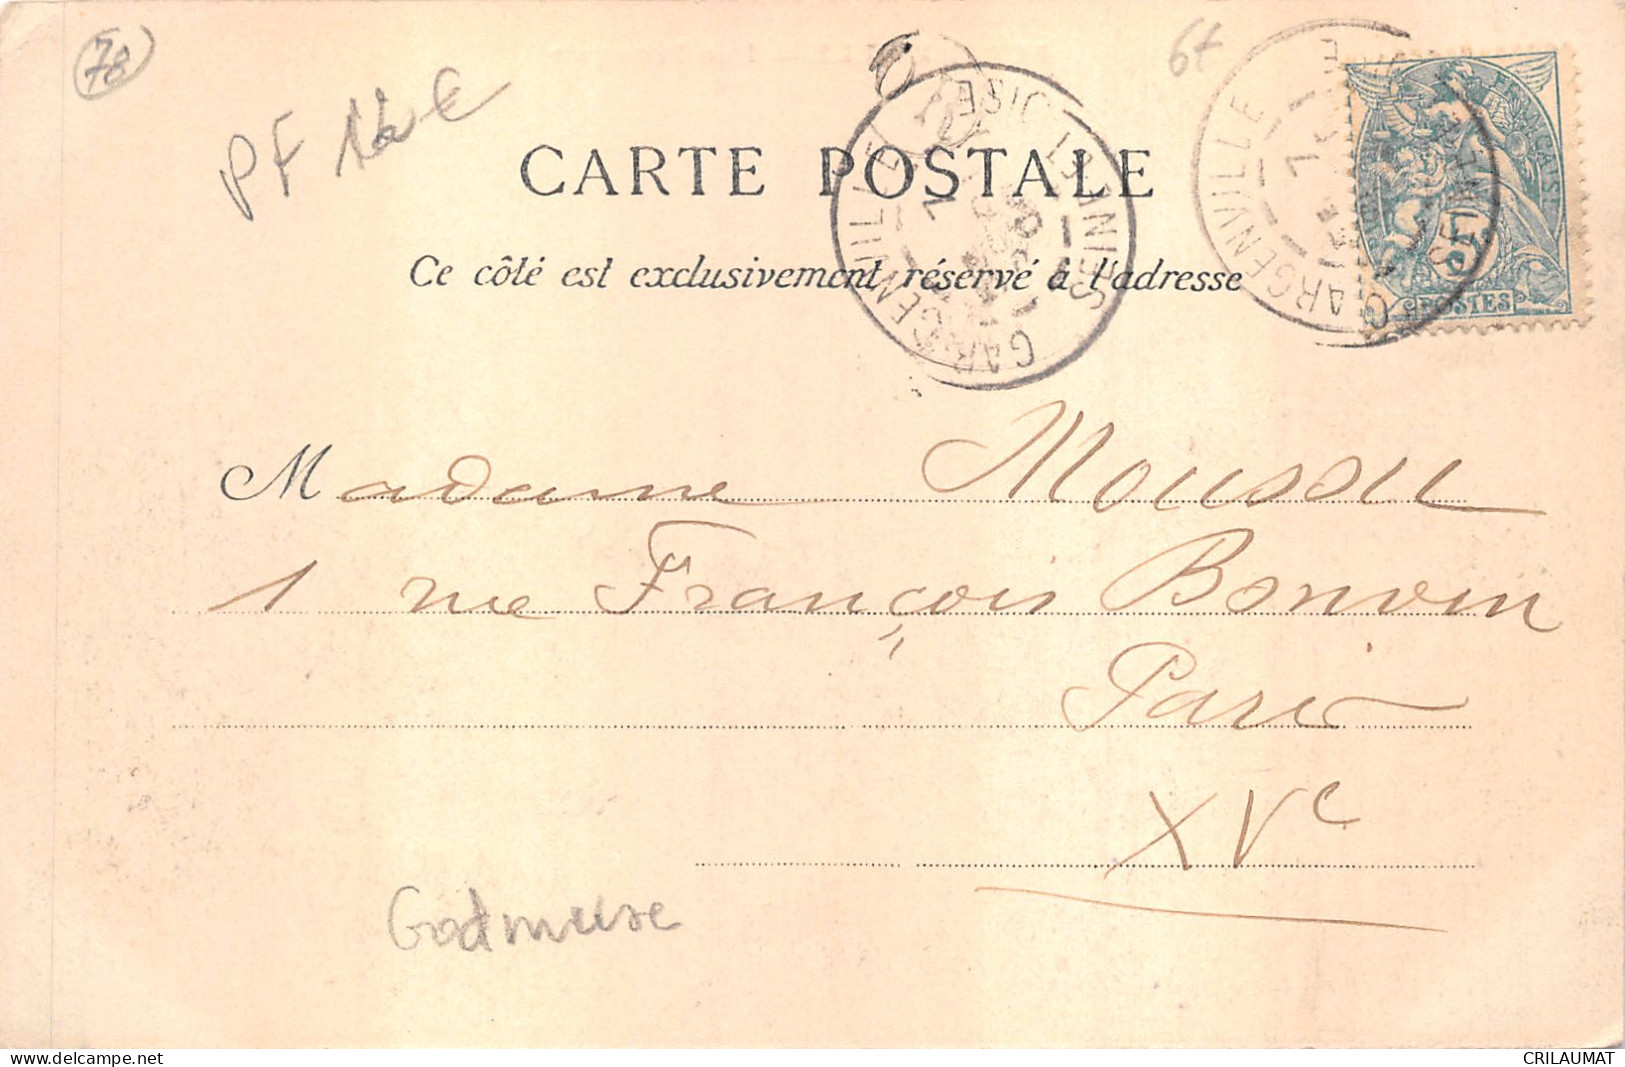 78
PF
CARTE POSTALE
Ce côté est exclusivement réservé à l'adresse
GARGENVILLE SEINE ET OISE
GARGENVILLE SEINE ET OISE
RÉPUBLIQUE FRANÇAISE
5
POSTES
Madame Moussu
1 rue François Bonvin
Paris
XVe
www.delcampe.net
CRILAUMAT